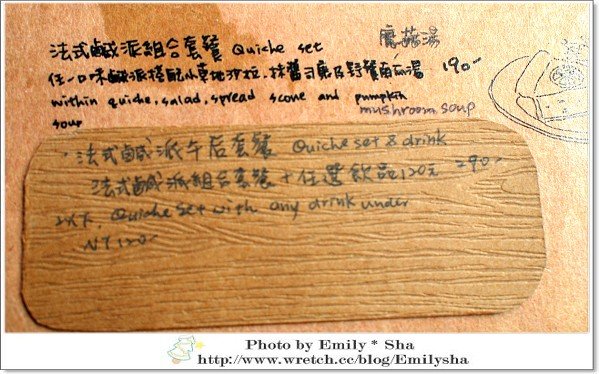 法式鹹派組合套餐 Quiche set
蘑菇湯
任一口味鹹派搭配小草地沙拉,抹醬司康及野餐南瓜湯 190-
within quiche, salad, spread scone and pumpkin
mushroom soup
soup
法式鹹派午后套餐 Quiche set & drink
法式鹹派組合套餐+任選飲品120元 290-
以下, Quiche set with any drink under
NT120-
Photo by Emily * Sha
http://www.wretch.cc/blog/Emilysha